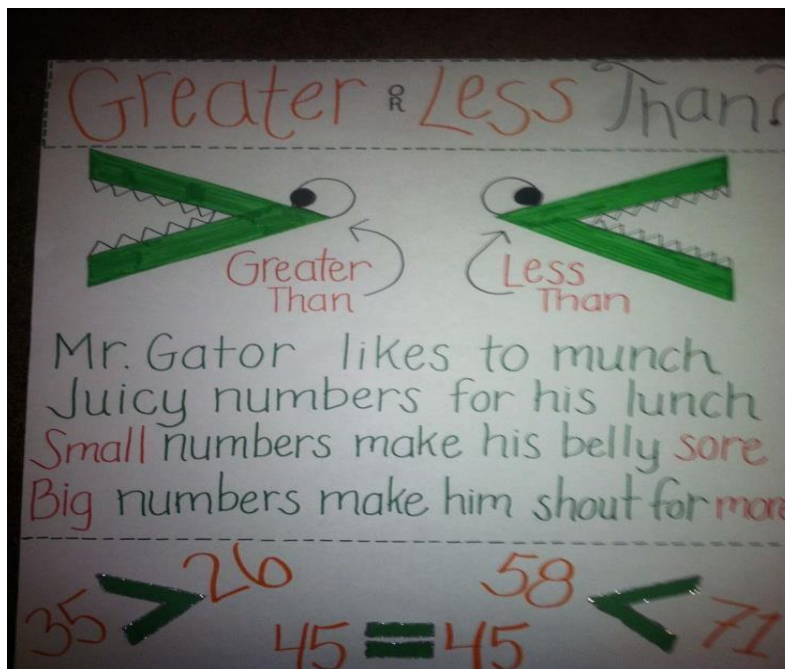 Greater OR Less Than?
Greater Than
Less Than
Mr. Gator likes to munch
Juicy numbers for his lunch
Small numbers make his belly sore
Big numbers make him shout for more
35 > 26
45 = 45
58 < 71